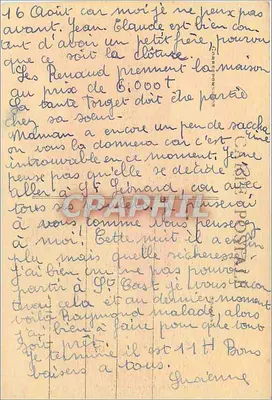 16 Août car moi je ne peux pas
avant. Jean Claude est bien con
tent d'avoir un petit frère, pourvu
que ce soit la clôture.
Les Renaud prennent la maison
au prix de 6.000f
La tante Forget doit être partie
chez sa soeur.
Maman a encore un peu de saccha
rine on vous la donnera car c'est
introuvable en ce moment. Je ne
pense pas qu'elle se décide
aller à St Léonard car avec
tous
à vous comme vous pensez
à moi! Cette nuit il a en
plu mais quelle sécheresse
j'ai bien cru ne pas pouvoir
partir à St Cast je vous
cela et au dernier moment
voilà Raymond malade, alors
j'ai bien à faire pour que tout
soit prêt.
Je termine il est 11H Bons
baisers à tous.
Lucienne
CARTE POSTALE
CPAPHIL